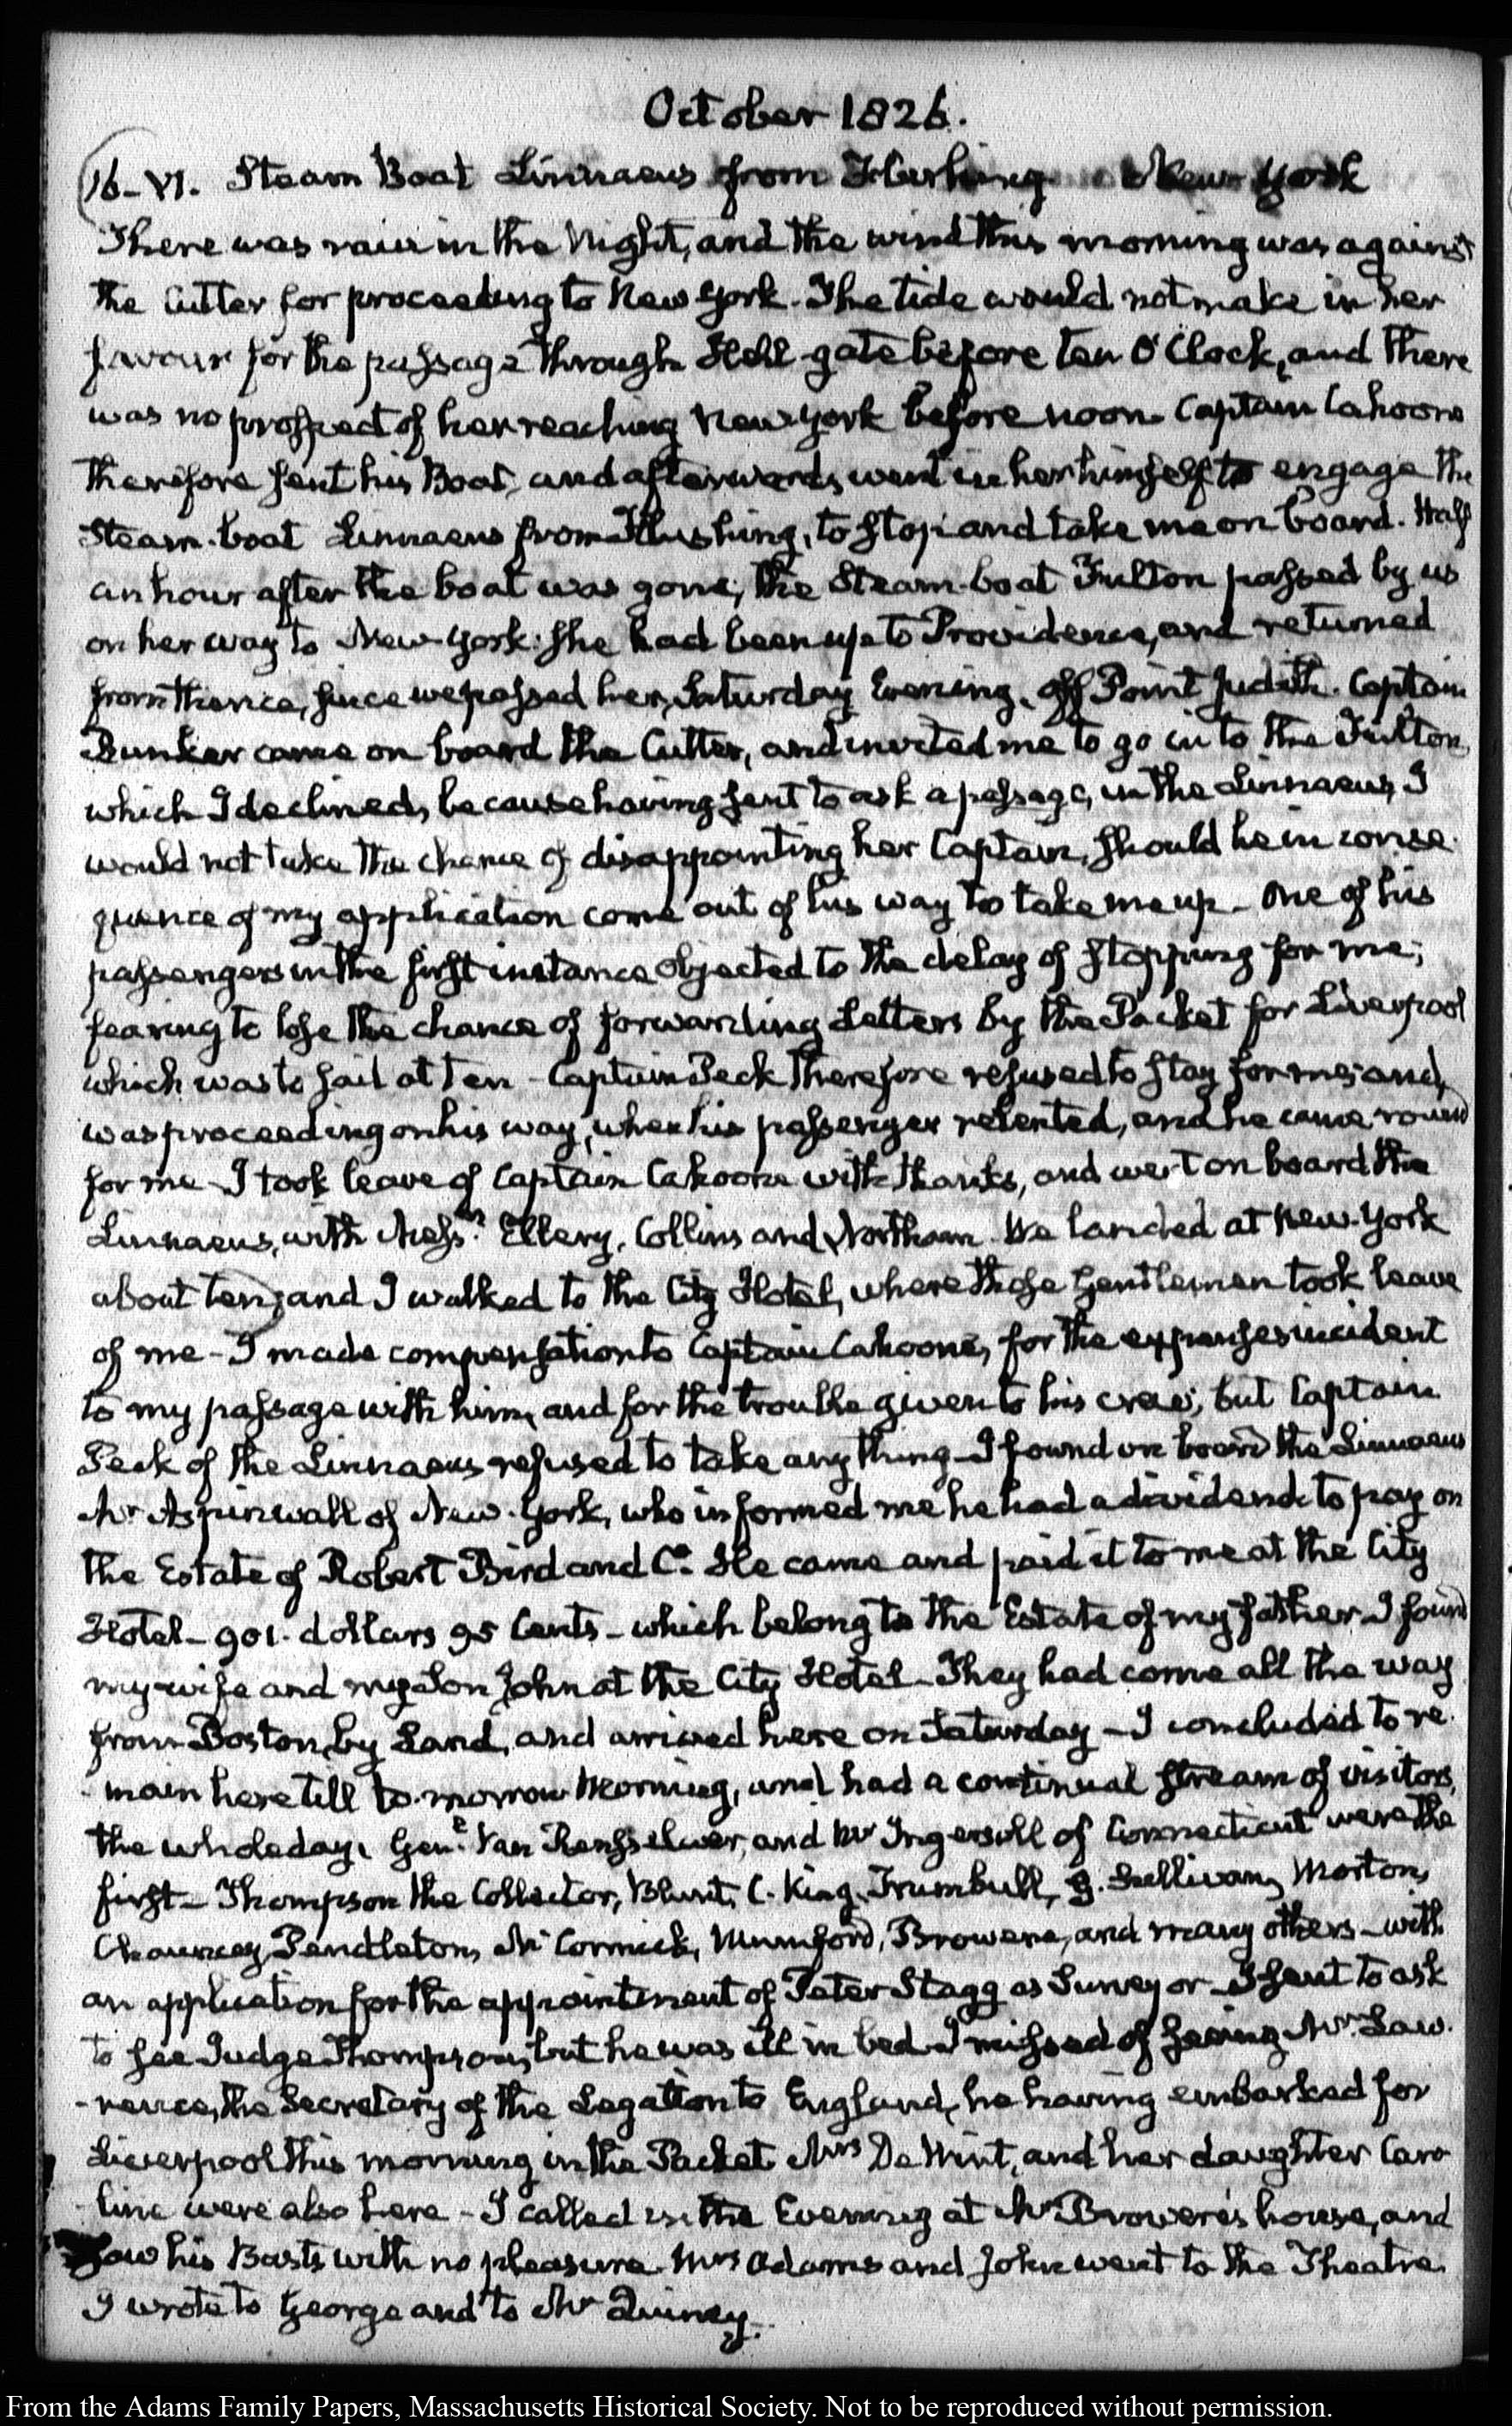 October 1826.
16. VI. Steam Boat Linnaeus from Flushing New York
There was rain in the Night, and the wind this morning was against
the Cutter for proceeding to New York. The tide would not make in her
favour for the passage through Hell-gate before ten O'Clock, and there
was no prospect of her reaching New York before noon. Captain Cahoone
therefore sent his Boat, and afterwards went in her himself to engage the
Steam-boat Linnaeus from Flushing, to stop and take me on board. Half
an hour after the boat was gone, the Steam-boat Fulton passed by us
on her way to New-York. She had been up to Providence, and returned
from thence, since we passed her, Saturday Evening, off Point Judith. Captain
Bunker came on board the Cutter, and invited me to go in to the Fulton,
which I declined, because having sent to ask a passage, in the Linnaeus, I
would not take the chance of disappointing her Captain, should he in conse-
quence of my application come out of his way to take me up. One of his
passengers in the first instance objected to the delay of stopping for me;
fearing to lose the chance of forwarding Letters by the Packet for Liverpool
which was to sail at ten - Captain Peck therefore refused to stay for me; and
was proceeding on his way, when his passenger relented, and he came round
for me - I took leave of Captain Cahoone with thanks, and went on board the
Linnaeus, with Messrs. Ellery, Collins and Northam. We landed at New-York
about ten, and I walked to the City Hotel, where those Gentlemen took leave
of me - I made compensation to Captain Cahoone, for the expenses incident
to my passage with him, and for the trouble given to his crew; but Captain
Peck of the Linnaeus refused to take any thing - I found on board the Linnaeus
Mr Aspinwall of New-York, who informed me he had a dividend to pay on
the Estate of Robert Bird and Co. He came and paid it to me at the City
Hotel - 901. dollars 95 Cents - which belong to the Estate of my father. I found
my wife and my Son John at the City Hotel - They had come all the way
from Boston, by Land, and arrived here on Saturday - I concluded to re-
-main here till to-morrow Morning, and had a continual stream of visitors,
the whole day. Genl. Van Rensselaer, and Mr Ingersoll of Connecticut were the
first - Thompson the Collector, Blunt, C. King, Trumbull, G. Sullivan, Morton,
Chauncey, Pendleton, McCormick, Mumford, Browere, and many others - with
an application for the appointment of Peter Stagg as Surveyor - I sent to ask
to see Judge Thompson, but he was ill in bed - I missed of seeing Mr. Law-
-rence, the Secretary of the Legation to England, he having embarked for
Liverpool this morning in the Packet. Mrs De Wint, and her daughter Caro-
-line were also here - I called in the Evening at Mr Browere's house, and
saw his Busts with no pleasure. Mrs Adams and John went to the Theatre.
I wrote to George and to Mr Quincy.
From the Adams Family Papers, Massachusetts Historical Society. Not to be reproduced without permission.